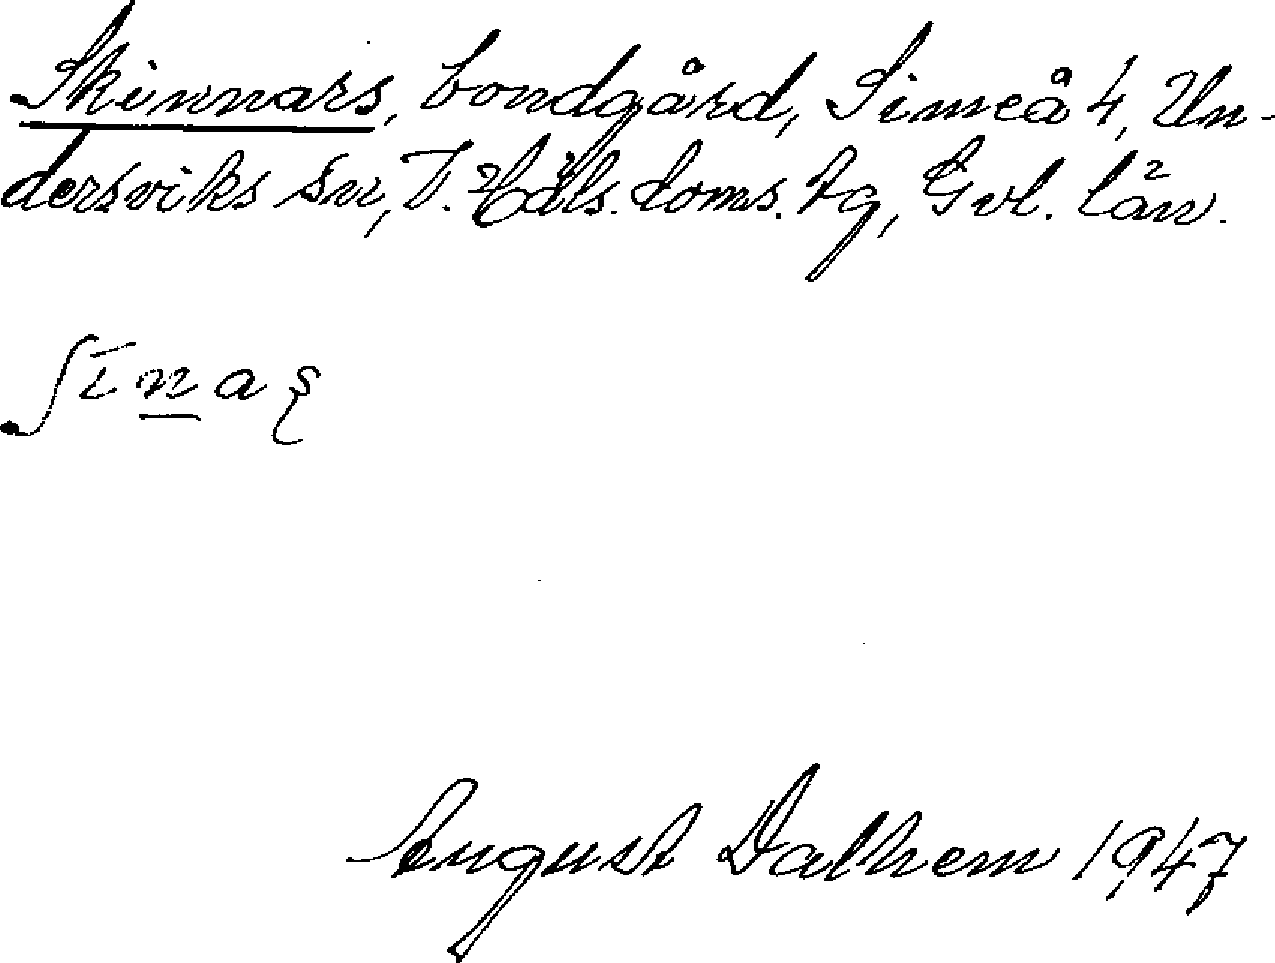 Skinnars, bondgård, Simeå 4, Un-
dersviks sn, V. Häls. doms. tg, Gvl. län.
August Dalhem 1947